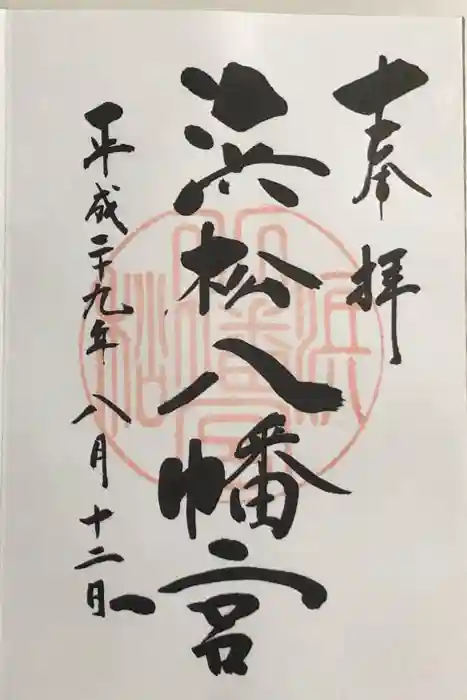 奉拝
浜松八幡宮
平成二十九年 八月 十二日